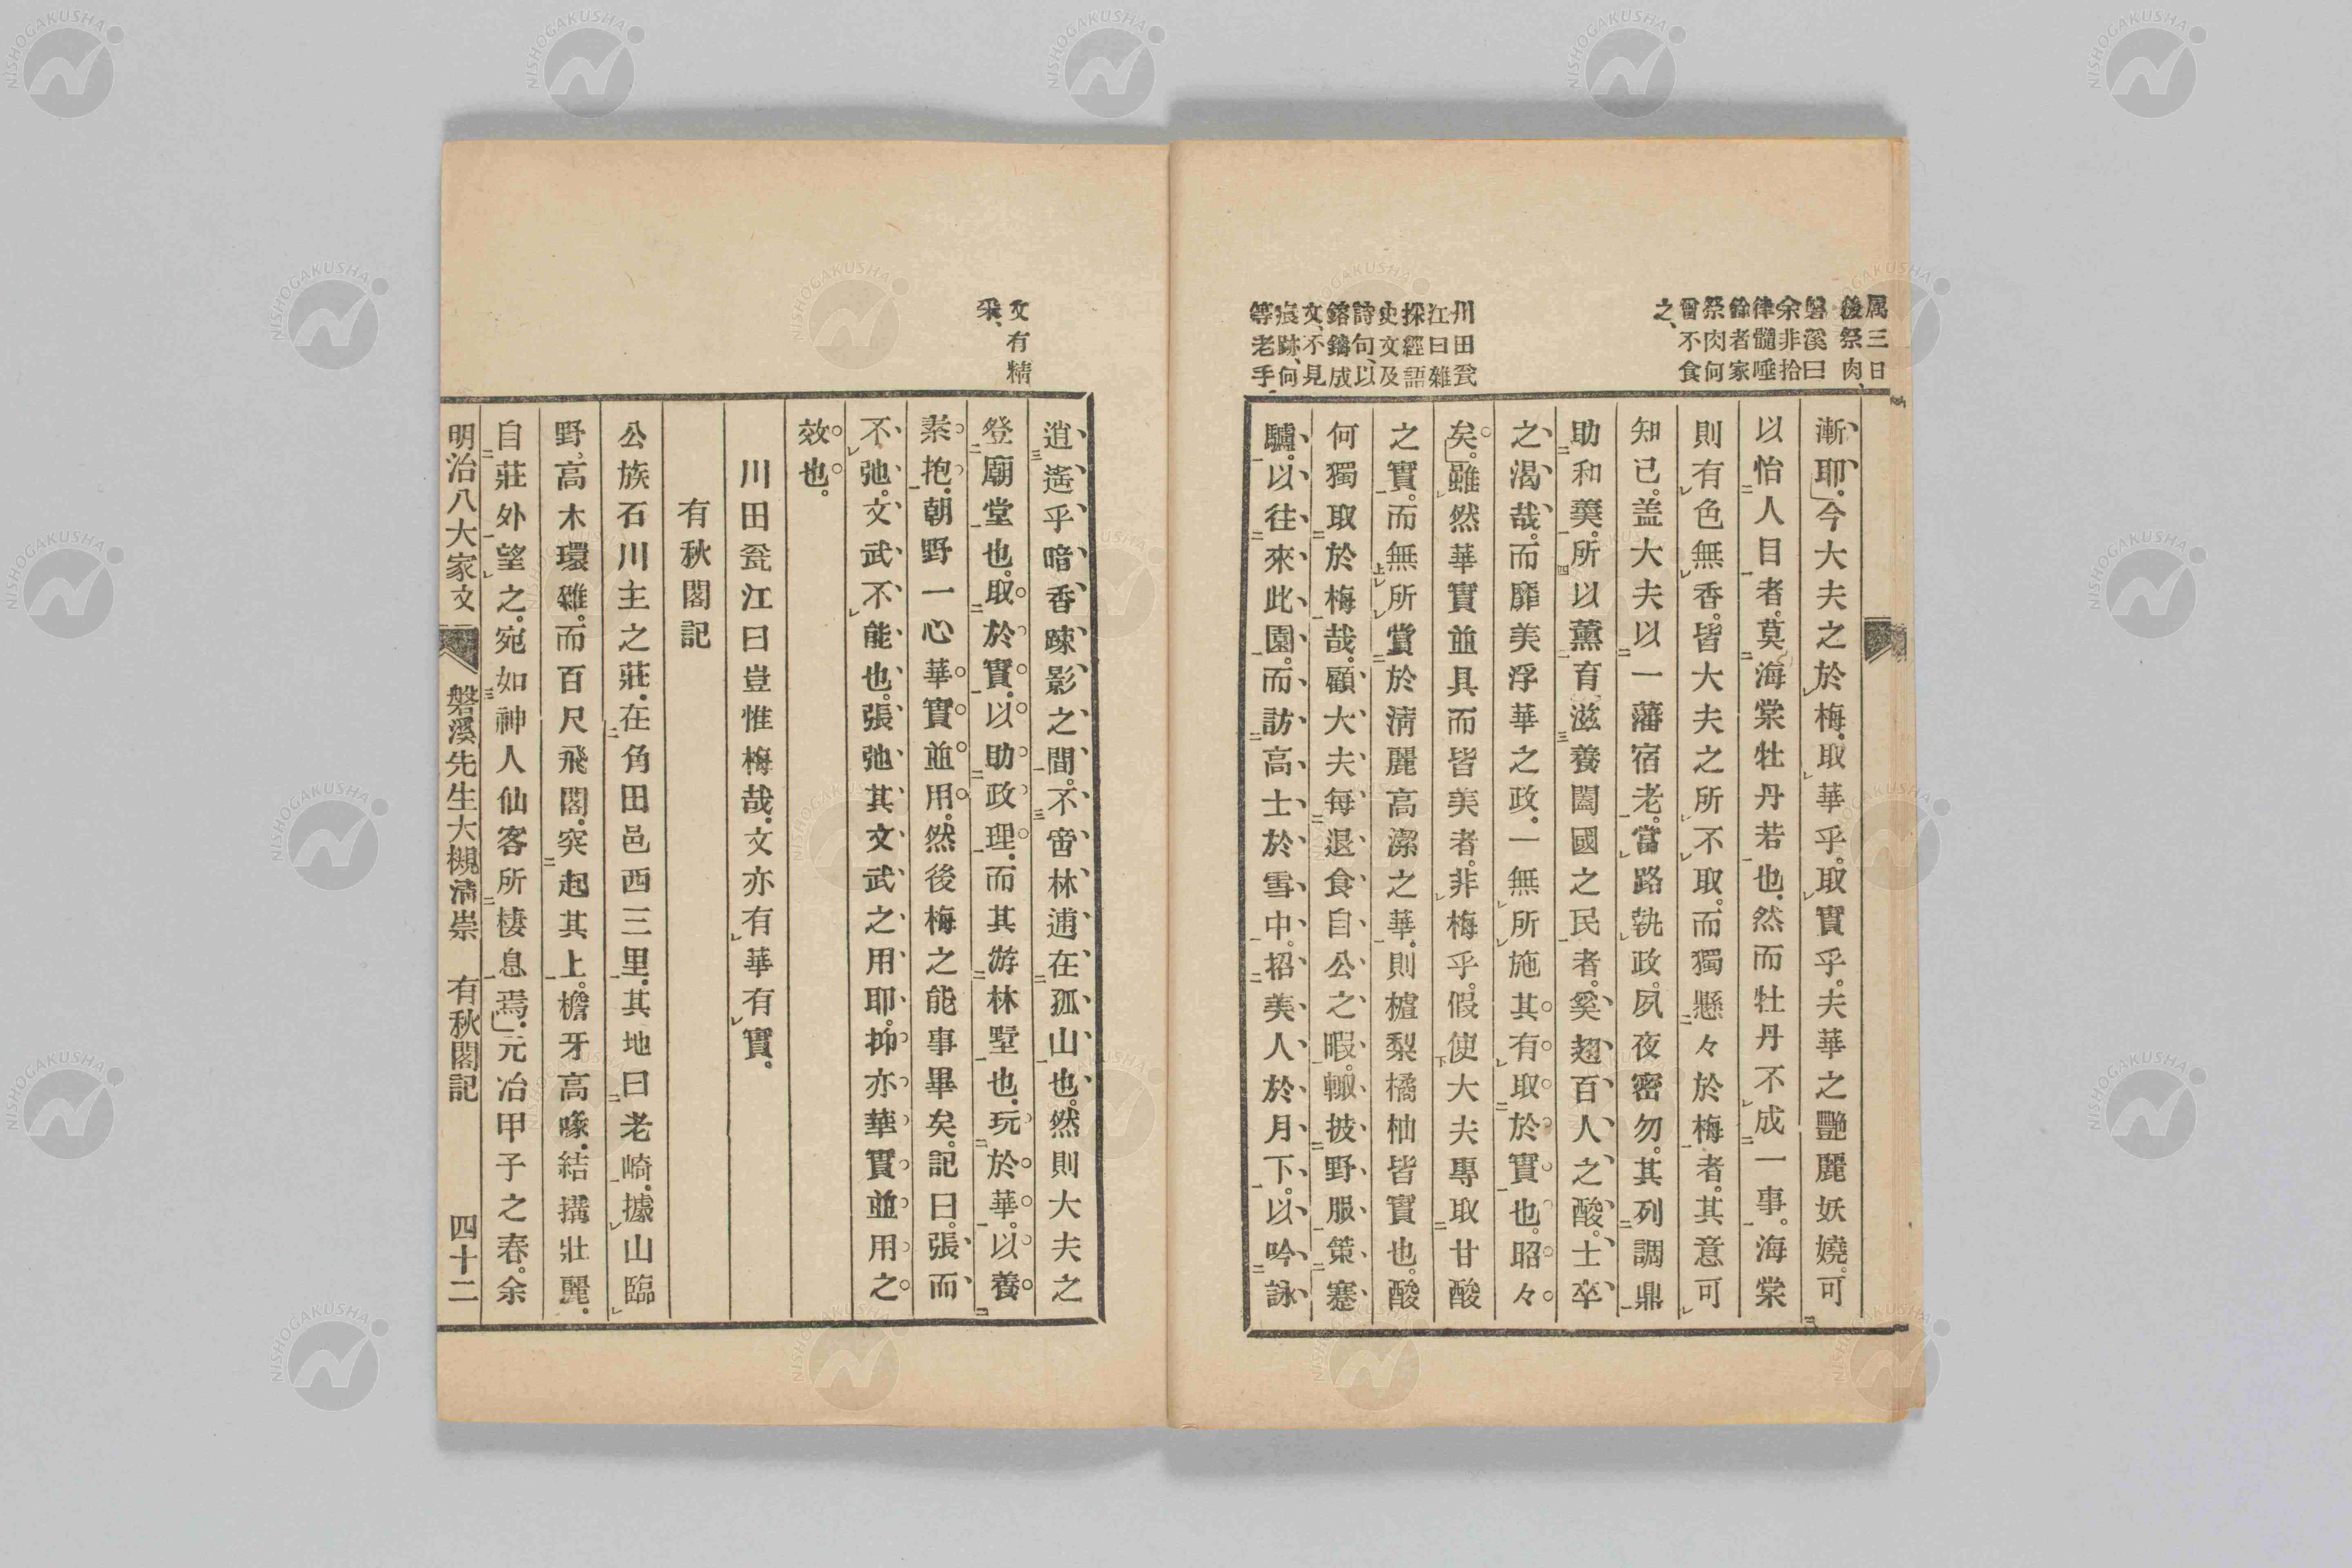 属三日
後祭肉、
磐溪曰
余非拾
律髓唾
餘者家
祭肉何
曾不食
之、
川田瓮
江曰雜
採經語
史文及
詩句、以
鎔鑄成
文、不見
痕跡、何
等老手、
漸耶。今大夫之於梅。取華乎。取實乎。夫華之艷麗妖嬈。可
以怡人目者。莫海棠牡丹若也。然而牡丹不成一事。海棠
則有色無香。皆大夫之所不取。而獨懸々於梅者。其意可
知已。盖大夫以一藩宿老。當路執政。夙夜密勿。其列調鼎
助和羹。所以薰育滋養闔國之民者。奚翅百人之酸。士卒
之渴哉。而靡美浮華之政。一無所施其有取於實也。昭々
矣。雖然華實並具而皆美者。非梅乎。假使大夫專取甘酸
之實。而無所賞於淸麗高潔之華。則樝梨橘柚皆實也。酸
何獨取於梅哉。顧大夫每退食自公之暇。輙披野服策蹇
驢。以往來此園。而訪高士於雪中。招美人於月下。以吟詠
文有精
采、
逍遙乎暗香疎影之間。不啻林逋在孤山也。然則大夫之
登廟堂也。取於實。以助政理。而其游林墅也。玩於華。以養
素抱。朝野一心華實並用。然後梅之能事畢矣。記曰。張而
不弛。文武不能也。張弛其文武之用耶。抑亦華實並用之
效也。
川田瓮江曰豈惟梅哉。文亦有華有實。
有秋閣記
公族石川主之莊。在角田邑西三里。其地曰老崎。據山臨
野。高木環雜。而百尺飛閣。突起其上。檐牙高啄。結搆壯麗。
自莊外望之。宛如神人仙客所棲息焉。元治甲子之春。余
明治八大家文 磐溪先生大槻淸崇 有秋閣記 四十二
NISHOGAKUSHA